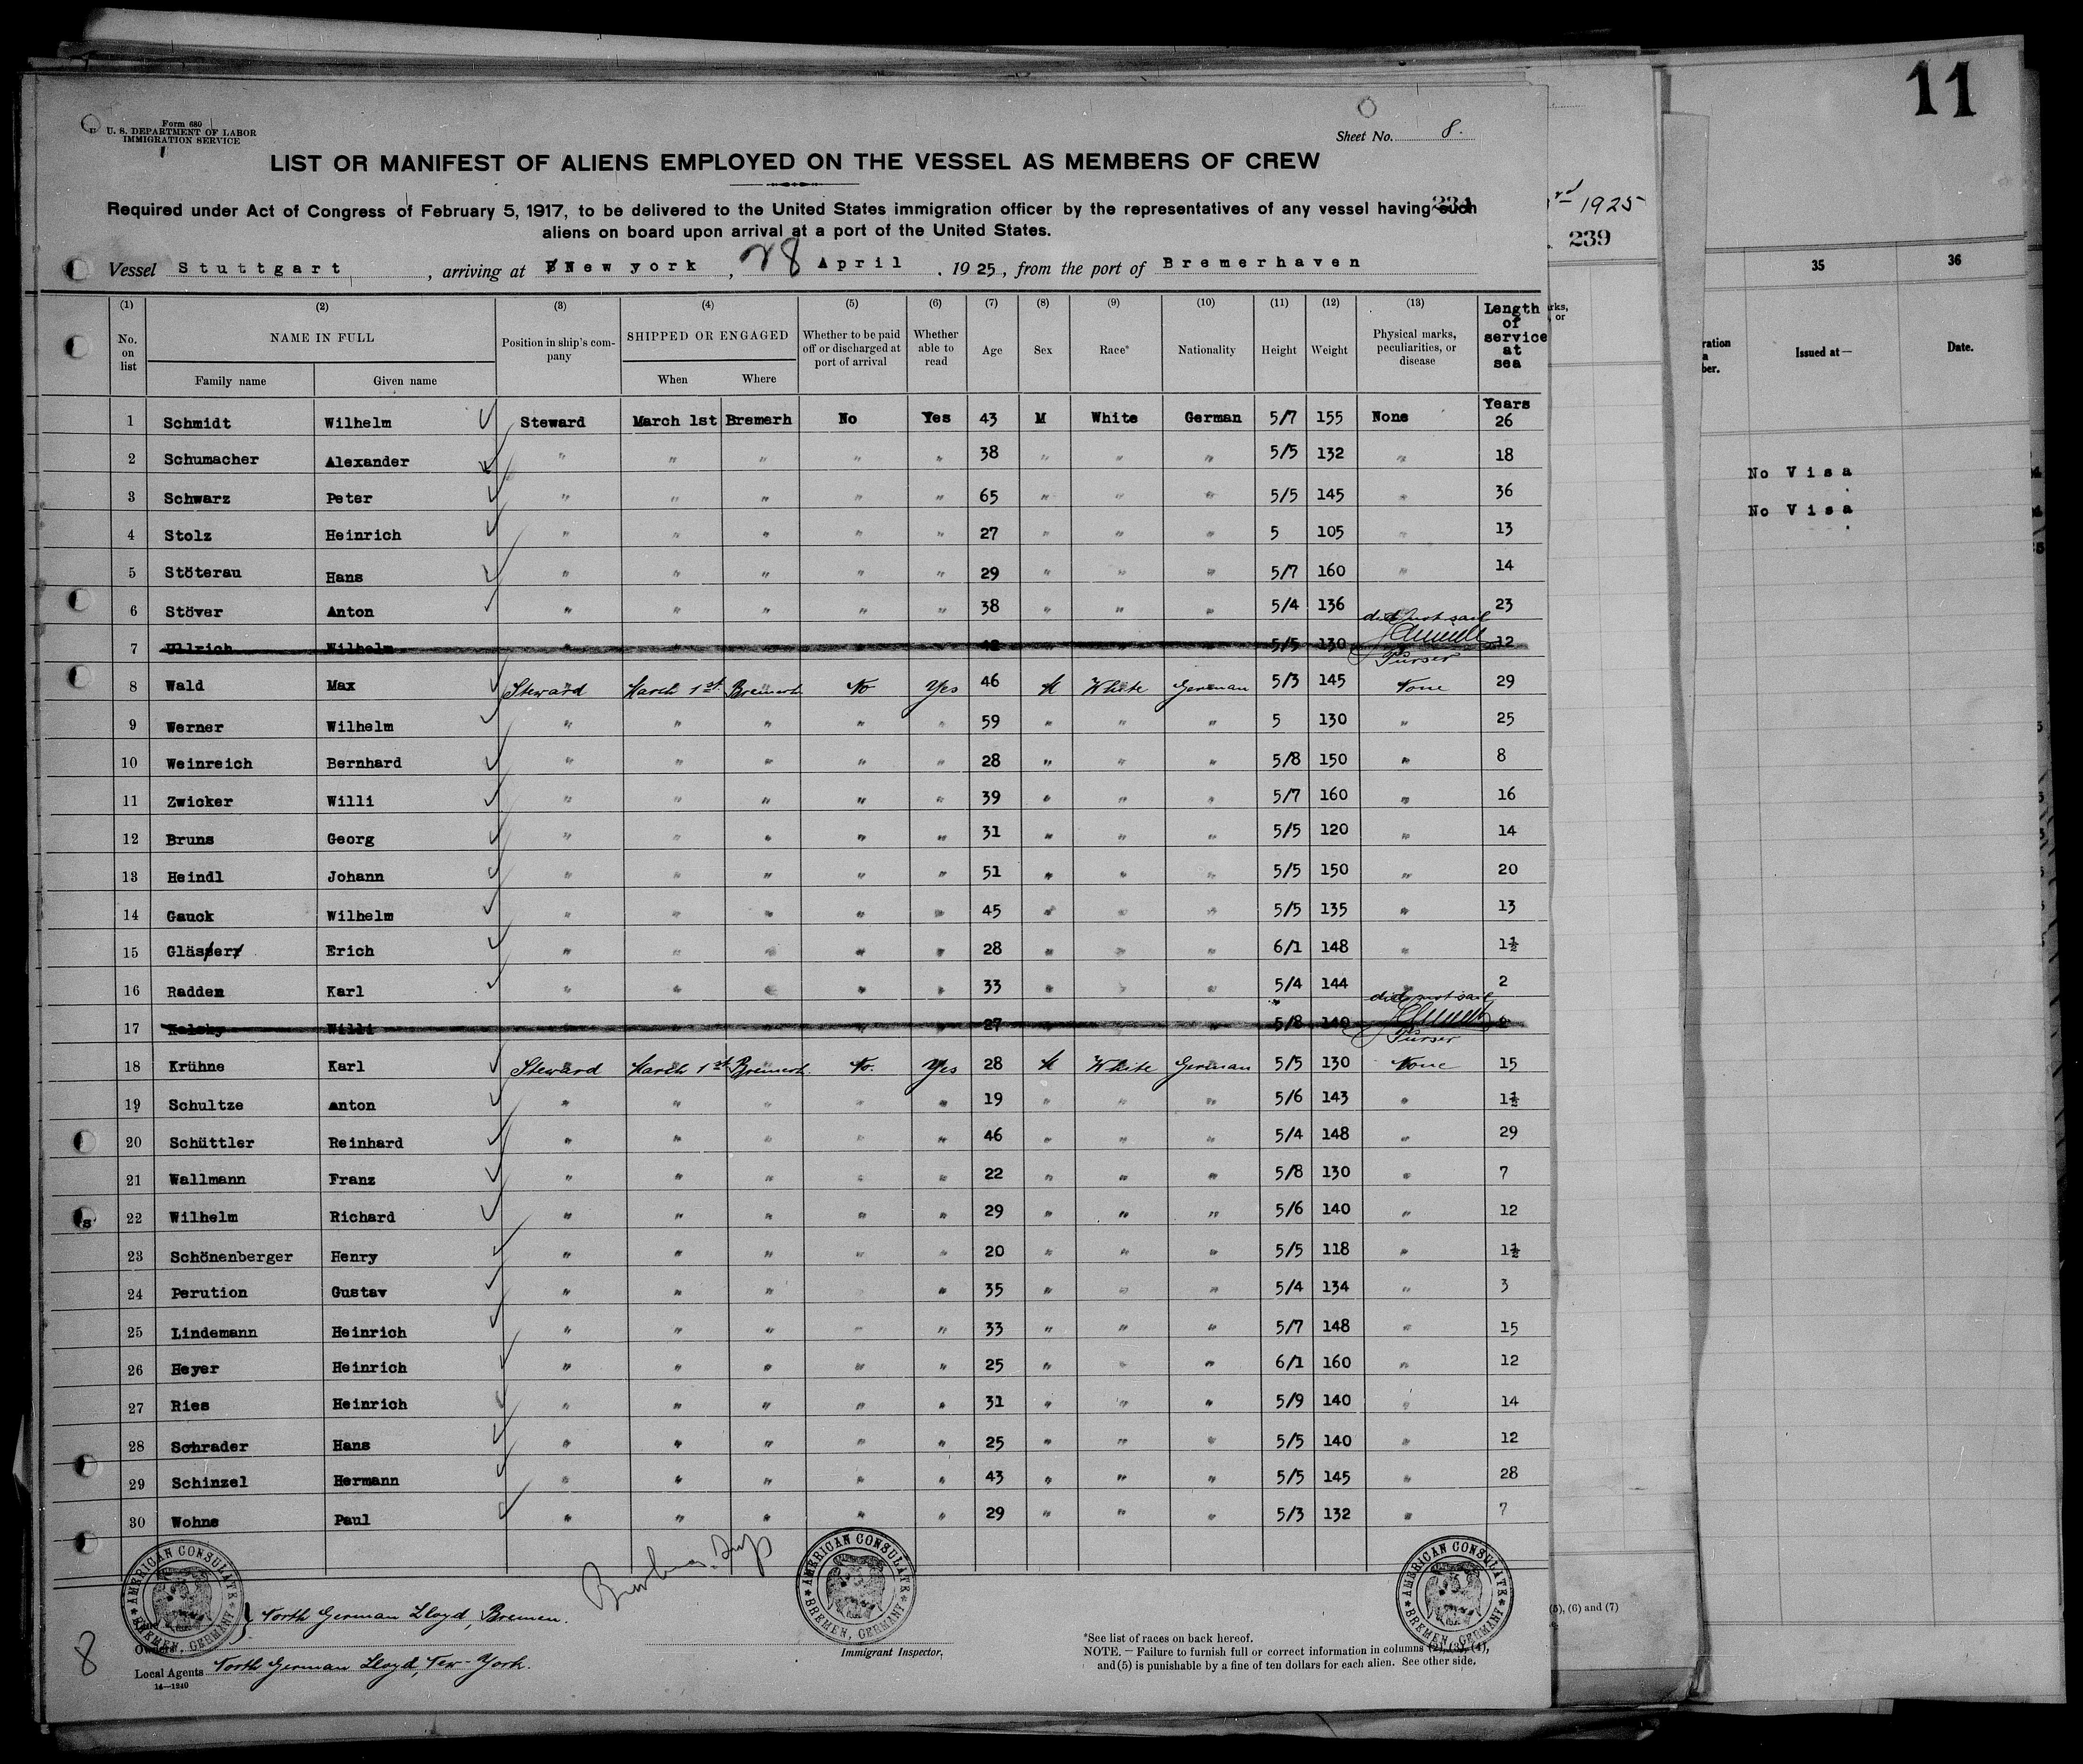 11
Form 680
U. S. DEPARTMENT OF LABOR
IMMIGRATION SERVICE
Sheet No. 8.
LIST OR MANIFEST OF ALIENS EMPLOYED ON THE VESSEL AS MEMBERS OF CREW
Required under Act of Congress of February 5, 1917, to be delivered to the United States immigration officer by the representatives of any vessel having such
aliens on board upon arrival at a port of the United States.
1925
239
Vessel Stuttgart, arriving at New york, 28 April, 1925, from the port of Bremerhaven
(1) (2) (3) (4) (5) (6) (7) (8) (9) (10) (11) (12) (13) Length of service at sea
No. on list NAME IN FULL Position in ship's company SHIPPED OR ENGAGED Whether to be paid off or discharged at port of arrival Whether able to read Age Sex Race* Nationality Height Weight Physical marks, peculiarities, or disease
Family name Given name When Where
35 36
Issued at— Date.
Years
1 Schmidt Wilhelm Steward March 1st Bremerh No Yes 43 M White German 5/7 155 None 26
2 Schumacher Alexander " " " " " 38 " " " 5/5 132 " 18
3 Schwarz Peter " " " " " 65 " " " 5/5 145 " 36
4 Stolz Heinrich " " " " " 27 " " " 5 105 " 13
5 Stöterau Hans " " " " " 29 " " " 5/7 160 " 14
6 Stöver Anton " " " " " 38 " " " 5/4 136 " 23
did not sail
7 Ullrich Wilhelm 5/5 130 12
Purser
8 Wald Max Steward March 1st Bremerh No Yes 46 M White German 5/3 145 None 29
9 Werner Wilhelm " " " " " 59 " " " 5 130 " 25
10 Weinreich Bernhard " " " " " 28 " " " 5/8 150 " 8
11 Zwicker Willi " " " " " 39 " " " 5/7 160 " 16
12 Bruns Georg " " " " " 31 " " " 5/5 120 " 14
13 Heindl Johann " " " " " 51 " " " 5/5 150 " 20
14 Gauck Wilhelm " " " " " 45 " " " 5/5 135 " 13
15 Gläser Erich " " " " " 28 " " " 6/1 148 " 1½
16 Radden Karl " " " " " 33 " " " 5/4 144 " 2
did not sail
17 Willi 27 5/8 140
Purser
18 Krühne Karl Steward March 1st Bremerh. No. Yes 28 M White German 5/5 130 None 15
19 Schultze Anton " " " " " 19 " " " 5/6 143 " 1½
20 Schüttler Reinhard " " " " " 46 " " " 5/4 148 " 29
21 Wallmann Franz " " " " " 22 " " " 5/8 130 " 7
22 Wilhelm Richard " " " " " 29 " " " 5/6 140 " 12
23 Schönenberger Henry " " " " " 20 " " " 5/5 118 " 1½
24 Perution Gustav " " " " 35 " " " 5/4 134 " 3
25 Lindemann Heinrich " " " " " 33 " " " 5/7 148 " 15
26 Heyer Heinrich " " " " " 25 " " " 6/1 160 " 12
27 Ries Heinrich " " " " " 31 " " " 5/9 140 " 14
28 Schrader Hans " " " " " 25 " " " 5/5 140 " 12
29 Schinzel Hermann " " " " " 43 " " " 5/5 145 " 28
30 Wohne Paul " " " " " 29 " " " 5/3 132 " 7
No Visa
No Visa
AMERICAN CONSULATE
BREMEN, GERMANY
AMERICAN CONSULATE
BREMEN, GERMANY
AMERICAN CONSULATE
BREMEN, GERMANY
North German Lloyd, Bremen.
Local Agents North German Lloyd, New-York.
14—1240
8
Immigrant Inspector.
*See list of races on back hereof.
NOTE.—Failure to furnish full or correct information in columns (2), (3), (4),
and (5) is punishable by a fine of ten dollars for each alien. See other side.
(5), (6) and (7)